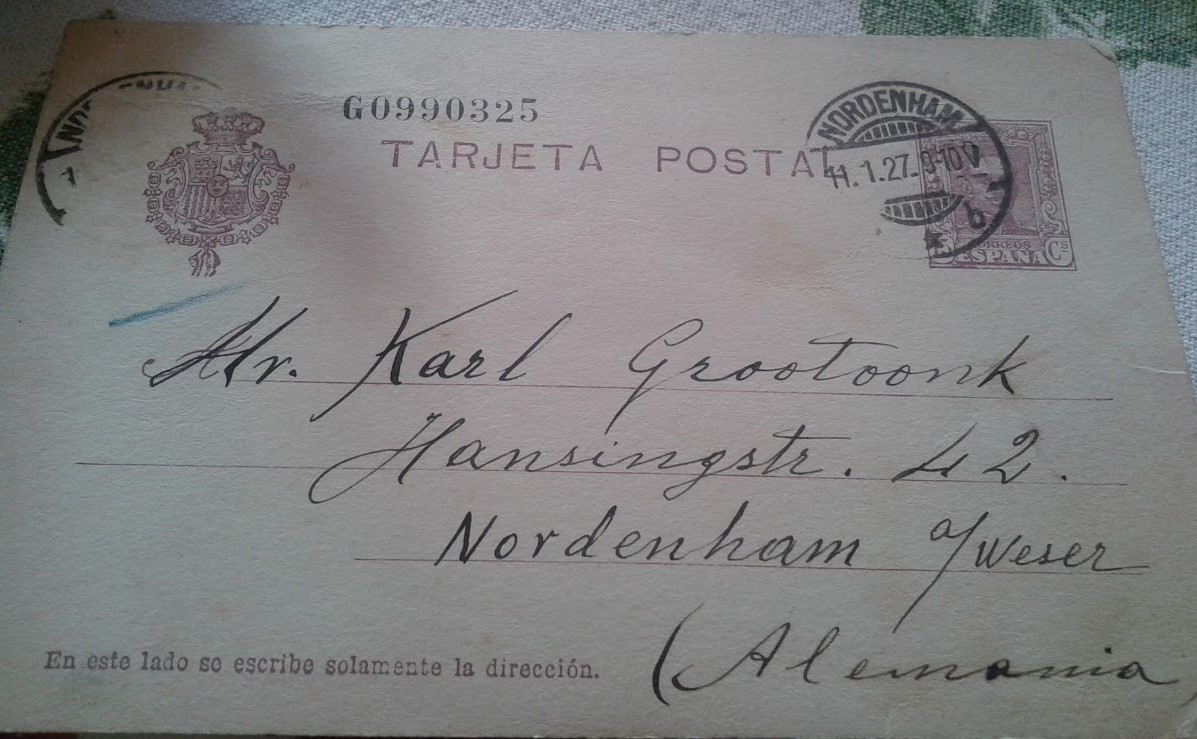 G0990325
TARJETA POSTAL
NORDENHAM
11.1.27. 9-10 V
* b
CORREOS
ESPAÑA Cs
Hr. Karl Grootoonk
Hansingstr. 42.
Nordenham a/Weser
(Alemania
En este lado se escribe solamente la dirección.